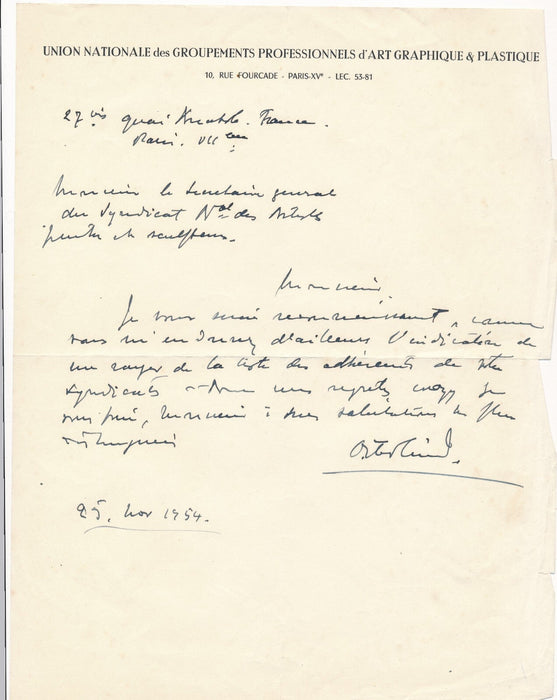 UNION NATIONALE des GROUPEMENTS PROFESSIONNELS d'ART GRAPHIQUE & PLASTIQUE
10, RUE FOURCADE - PARIS-XVᵉ - LEC. 53-81
27 bis quai Anatole. France.
Paris. VII em
Monsieur le Secretaire general
du Syndicat Nal des Artistes
peintres et sculpteurs.
Monsieur,
Je vous serai reconnaissant, comme
vous m'en donnez d'ailleurs l'indication de
me rayer de la liste des adhérents de votre
syndicat mes regrets, croyez je
vous prie, Monsieur à mes salutations les plus
distinguées
Osterlind.
25. Nov 1954.